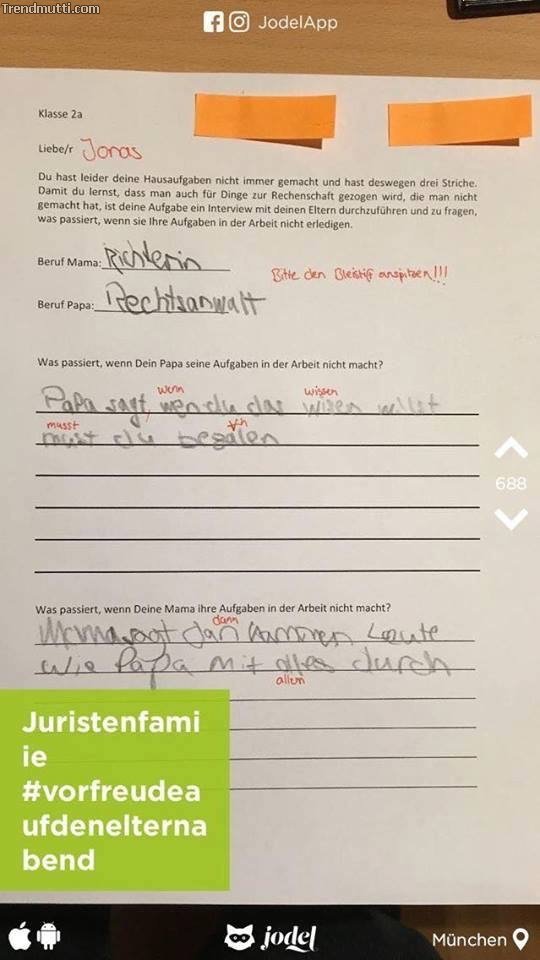 Trendmutti.com
JodelApp
Klasse 2a
Liebe/r Jonas
Du hast leider deine Hausaufgaben nicht immer gemacht und hast deswegen drei Striche.
Damit du lernst, dass man auch für Dinge zur Rechenschaft gezogen wird, die man nicht
gemacht hat, ist deine Aufgabe ein Interview mit deinen Eltern durchzuführen und zu fragen,
was passiert, wenn sie Ihre Aufgaben in der Arbeit nicht erledigen.
Beruf Mama: Richterin
Bitte den Bleistift anspitzen!!!
Beruf Papa: Rechtsanwalt
Was passiert, wenn Dein Papa seine Aufgaben in der Arbeit nicht macht?
wenn wissen
Papa sagt, wen du das wisen willst
musst h
must du bezalen
688
Was passiert, wenn Deine Mama ihre Aufgaben in der Arbeit nicht macht?
dann
Mama sagt dan kommen Leute
wie Papa mit alles durch
allem
Juristenfami
ie
#vorfreudea
ufdenelterna
bend
jodel
München